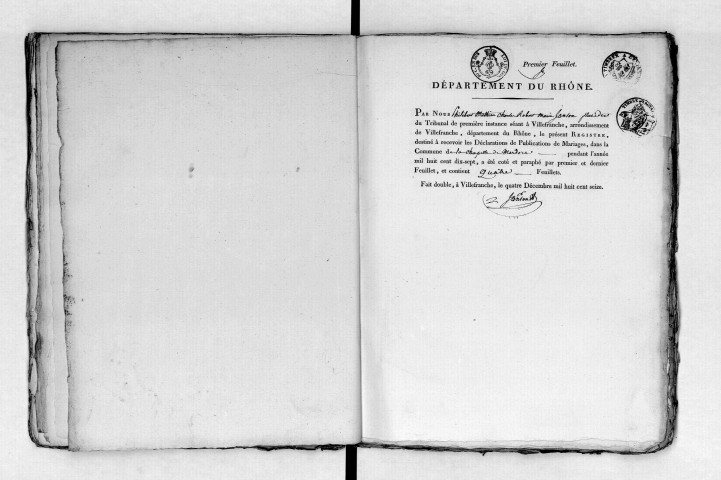 Premier Feuillet.
DÉPARTEMENT DU RHÔNE.
PAR NOUS Philibert Mathieu Charles Robert Marie président
du Tribunal de première instance séant à Villefranche, arrondissement
de Villefranche, département du Rhône, le présent REGISTRE,
destiné à recevoir les Déclarations de Publications de Mariages, dans la
Commune de la Chapelle de Mardore pendant l'année
mil huit cent dix-sept, a été coté et paraphé par premier et dernier
Feuillet, et contient quatre Feuillets.
Fait double, à Villefranche, le quatre Décembre mil huit cent seize.